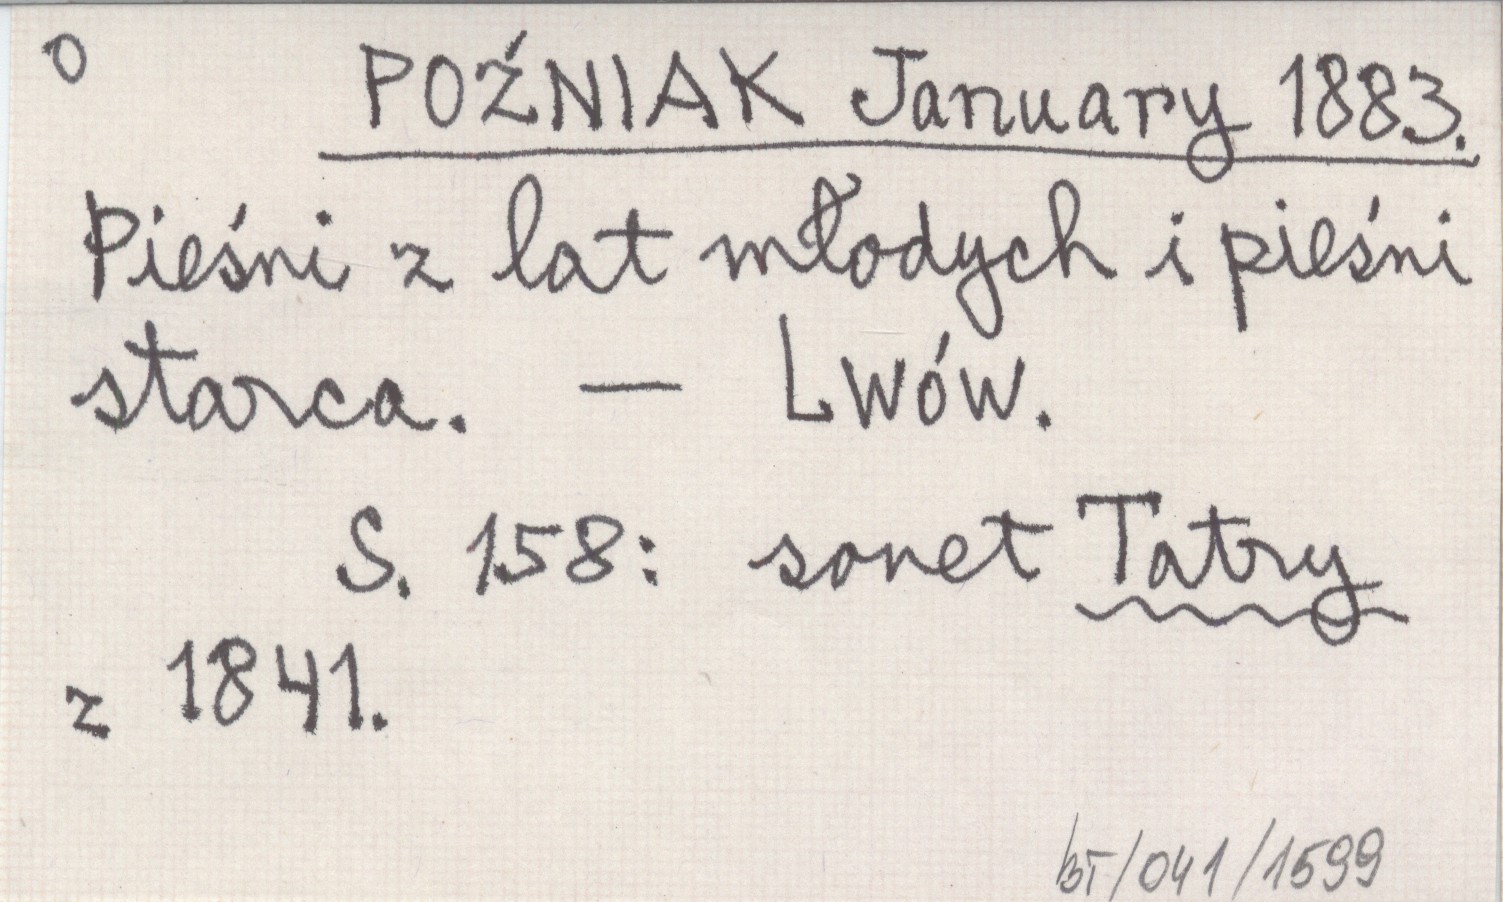 o POŹNIAK January 1883.
Pieśni z lat młodych i pieśni
starca. — Lwów.
S. 158: sonet Tatry
z 1841.
BT/041/1599